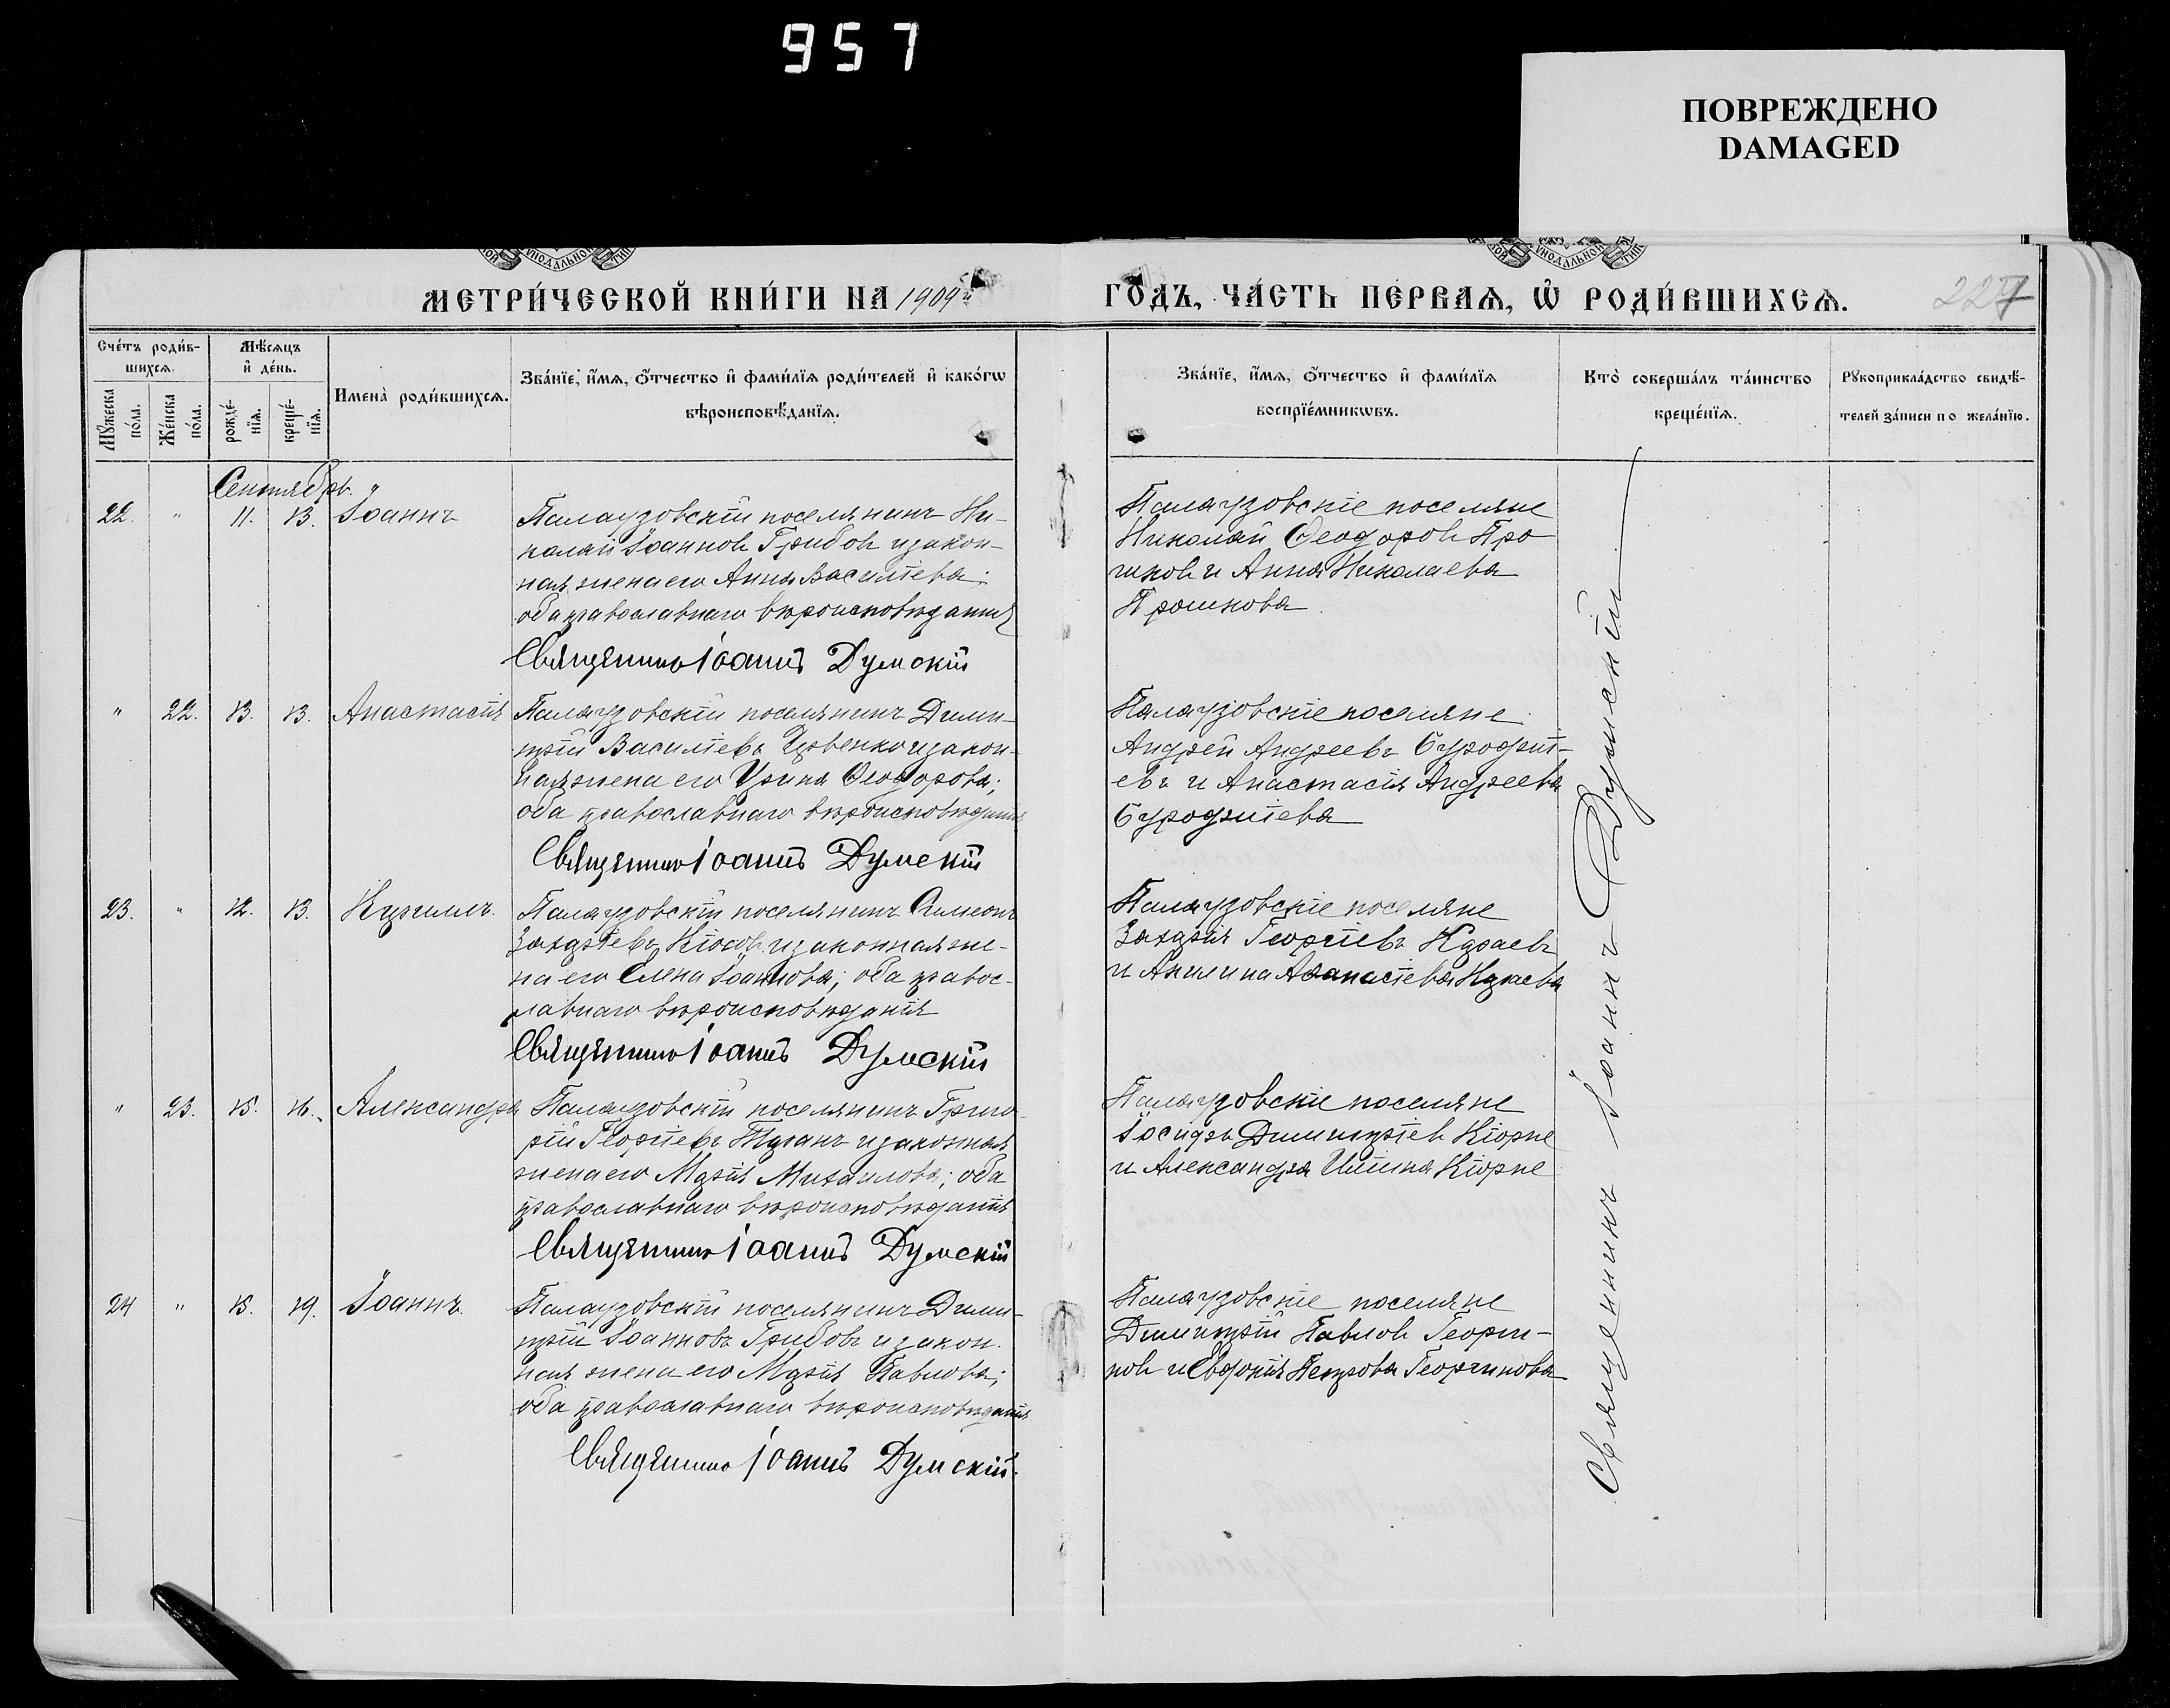 957
ПОВРЕЖДЕНО
DAMAGED
МЕТРИ́ЧЕСКОЙ КНИ́ГИ НА 1909й
ГО́ДЪ, ЧА́СТЬ ПЕ́РВАѦ, Ѽ РОДИ́ВШИХСѦ.
227
Сче́тъ роди́в-
шихсѧ.
Мѣ́сѧцъ
и҆ де́нь.
Мꙋ́жеска
по́ла.
Же́нска
по́ла.
рожде́-
нїѧ.
креще́-
нїѧ.
Имена̀ роди́вшихсѧ.
Зва́нїе, и҆́мѧ, ѻ҆́тчество и҆ фами́лїѧ роди́телей и҆ како́гѡ
вѣроисповѣ́данїѧ.
Зва́нїе, и҆́мѧ, ѻ҆́тчество и҆ фами́лїѧ
воспрїе́мникѡвъ.
Кто̀ соверша́лъ та́инство
креще́нїѧ.
Рꙋкоприкла́дство свидѣ́-
телей за́писи по жела́нїю.
Сентябрь.
22. " 11. 13. Іоаннъ
Палаузовскій поселянинъ Ни-
колай Іоанновъ Грибовъ и закон-
ная жена его Анна Василіева;
оба православнаго вѣроисповѣданія
Священникъ Іоаннъ Думскій
Палаузовскіе поселяне
Николай Ѳеодоровъ Про
и Анна Николаева
" 22. 13. 13. Анастасія
Палаузовскій поселянинъ Дими-
трій Василіевъ и закон-
ная жена его Ирина Ѳеодорова;
оба православнаго вѣроисповѣданія
Священникъ Іоаннъ Думскій
Палаузовскіе поселяне
Андрей Андреевъ Бурджі-
евъ и Анастасія Андреева
Бурджіева
23. " 12. 13. Кириллъ
Палаузовскій поселянинъ Симеонъ
Захаріевъ Кіосовъ и законная же-
на его Елена Іоаннова; оба правос-
лавнаго вѣроисповѣданія
Священникъ Іоаннъ Думскій
Палаузовскіе поселяне
Захарія Георгіевъ Караевъ
и Ангелина Аѳанасіева Караева
" 23. 15. 16. Александра
Палаузовскій поселянинъ Григо-
рій Георгіевъ и законная
жена его Марія Михаилова; оба
православнаго вѣроисповѣданія
Священникъ Іоаннъ Думскій
Палаузовскіе поселяне
Іосифъ Димитріевъ Кіорпе
и Александра Иліина Кіорпе
24 " 15. 19. Іоаннъ.
Палаузовскій поселянинъ Дими-
трій Іоанновъ Грибовъ и закон.
ная жена его Марія Павлова;
оба православнаго вѣроисповѣданія
Священникъ Іоаннъ Думскій.
Палаузовскіе поселяне
Димитрій Павловъ Георги-
новъ и Евдокія Петрова Георгинова
Священникъ Іоаннъ Думскій